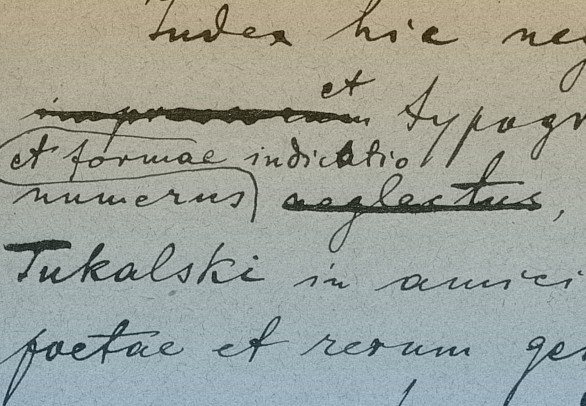 Index hic neg
et
impressorum typogr
et formae indicatio
numerus neglectus,
Tukalski in amici
poetae et rerum ge